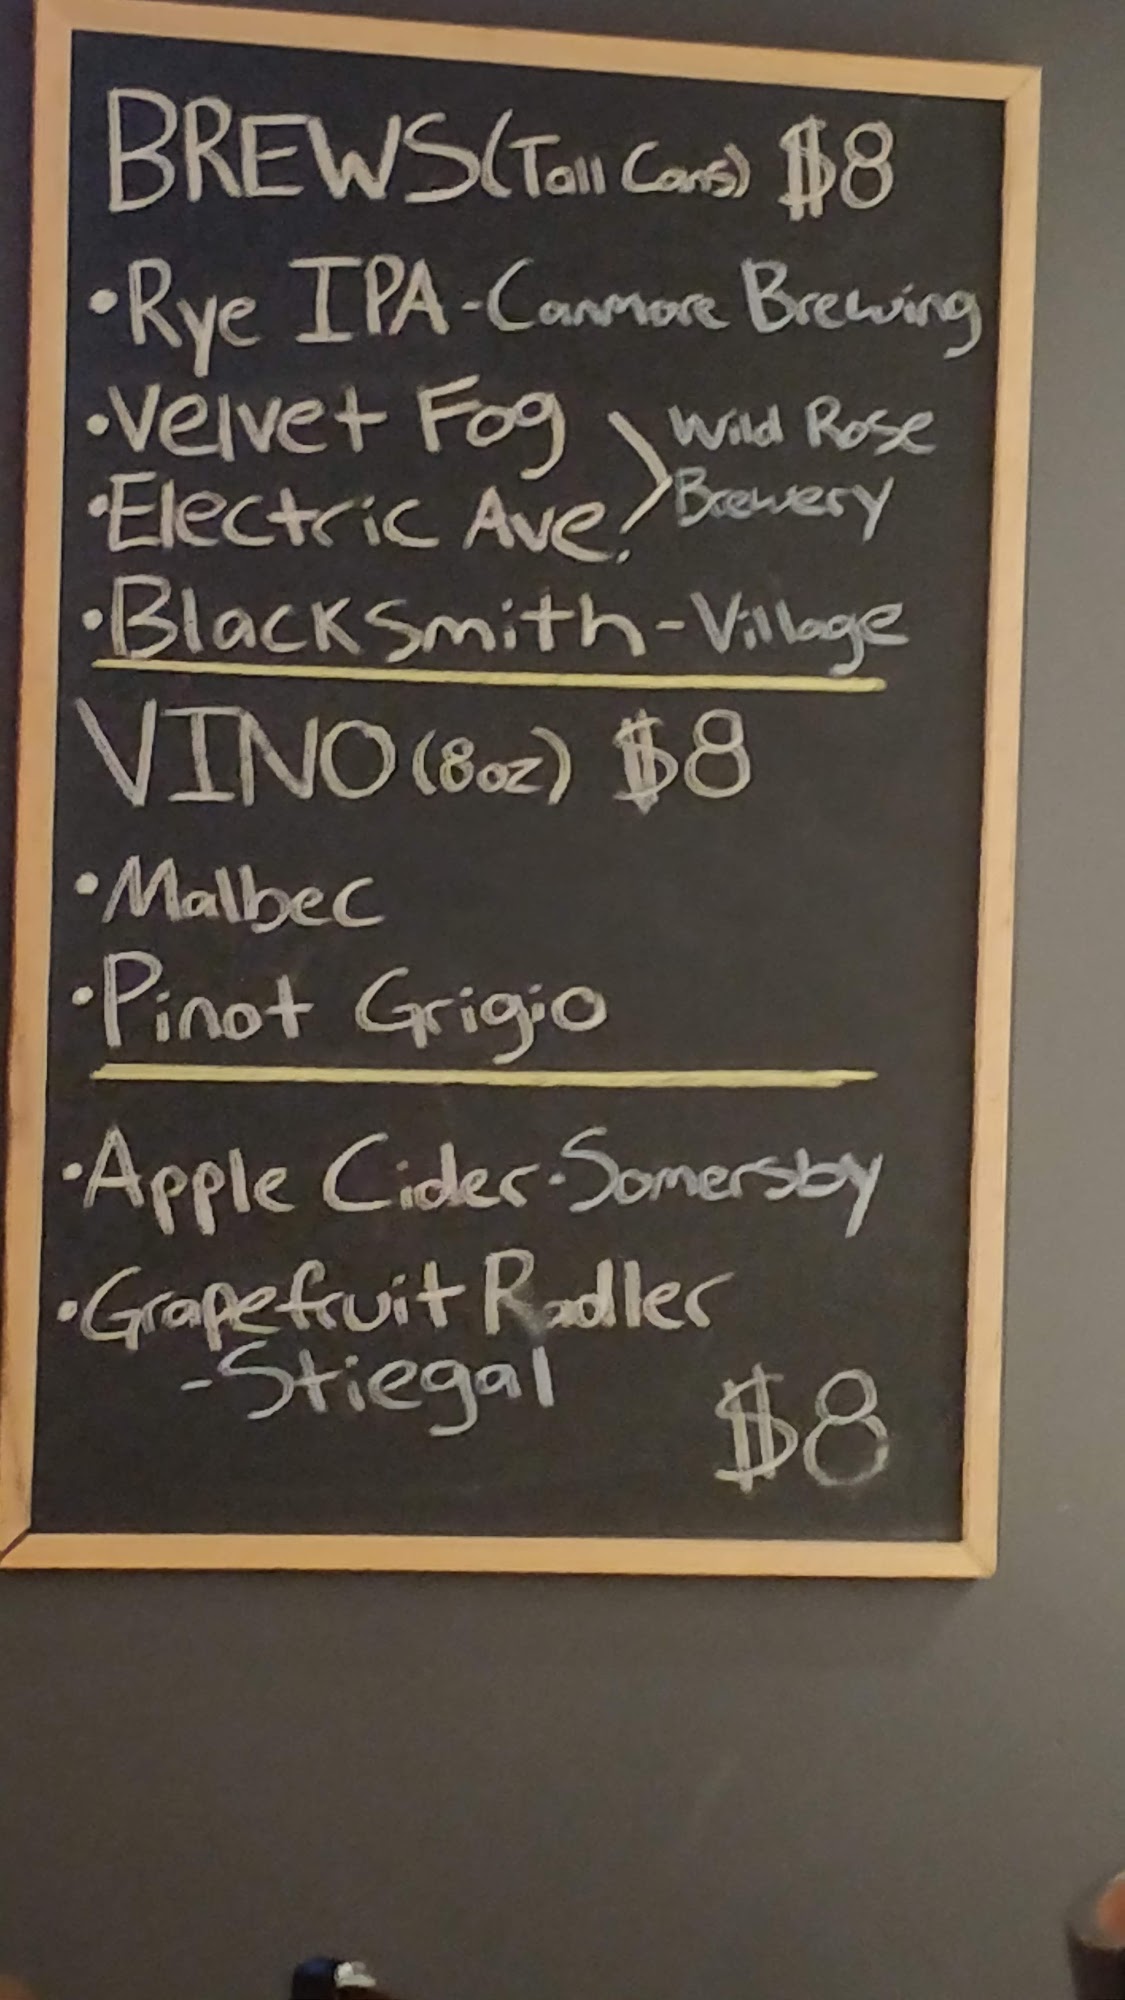 BREWS (Tall Cans) $8
•Rye IPA - Canmore Brewing
•Velvet Fog
Wild Rose
•Electric Ave.
Brewery
•Blacksmith - Village
VINO (8oz) $8
•Malbec
•Pinot Grigio
•Apple Cider - Somersby
•Grapefruit Radler
- Stiegal
$8